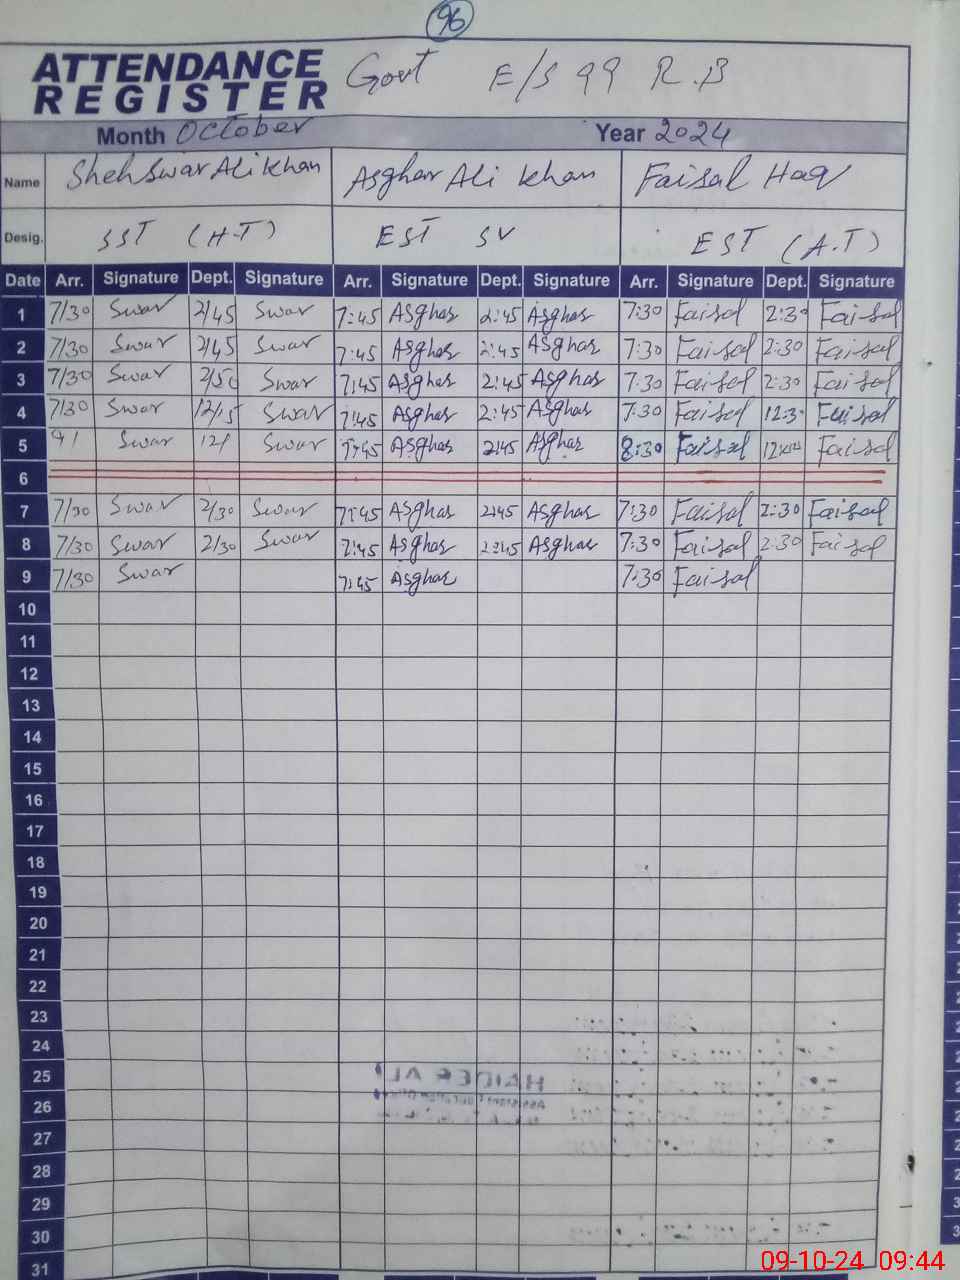 96
ATTENDANCE REGISTER Govt E/S 99 R.B
Month October Year 2024
Name Sheh Swar Ali Khan Asghar Ali Khan Faisal Haq
Desig. SST (H.T) EST SV EST (A.T)
Date Arr. Signature Dept. Signature Arr. Signature Dept. Signature Arr. Signature Dept. Signature
1 7/30 Swar 2/45 Swar 7:45 Asghar 2:45 Asghar 7:30 Faisal 2:30 Faisal
2 7/30 Swar 2/45 Swar 7:45 Asghar 2:45 Asghar 7:30 Faisal 2:30 Faisal
3 7/30 Swar 2/50 Swar 7:45 Asghar 2:45 Asghar 7:30 Faisal 2:30 Faisal
4 7/30 Swar 12/15 Swar 7:45 Asghar 2:45 Asghar 7:30 Faisal 12:30 Faisal
5 9/ Swar 12/ Swar 7:45 Asghar 2:45 Asghar 8:30 Faisal Faisal
6
7 7/30 Swar 2/30 Swar 7:45 Asghar 2:45 Asghar 7:30 Faisal 2:30 Faisal
8 7/30 Swar 2/30 Swar 7:45 Asghar 2:45 Asghar 7:30 Faisal 2:30 Faisal
9 7/30 Swar 7:45 Asghar 7:30 Faisal
10
11
12
13
14
15
16
17
18
19
20
21
22
23
24
25
26
27
28
29
30
31
09-10-24 09:44